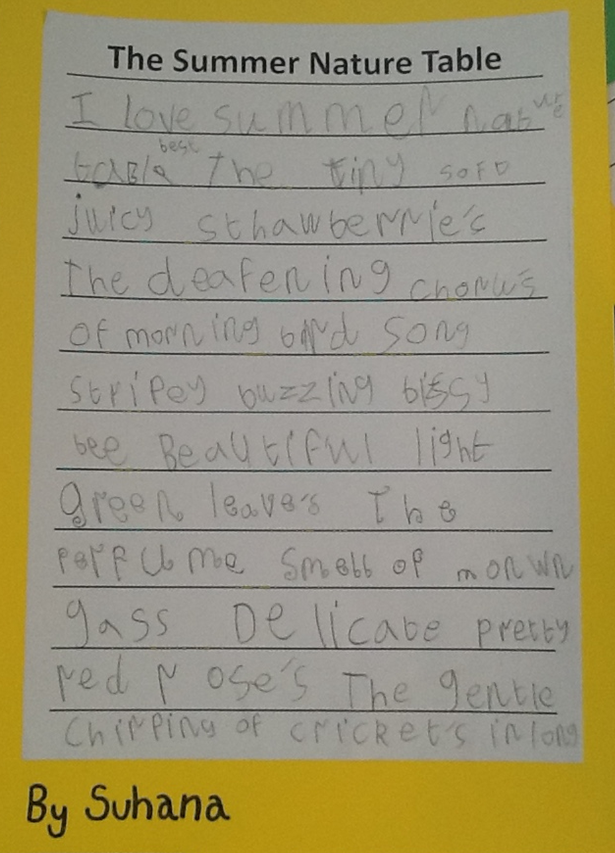 The Summer Nature Table
I love summer nature
table best The tiny soft
juicy sthawberrie's
the deafening chorus
of morning bird song
stripey buzzing bissy
bee Beautiful light
green leave's The
perfume smell of mown
gass Delicate pretty
red rose's The gentle
Chirping of cricket's in long
By Suhana